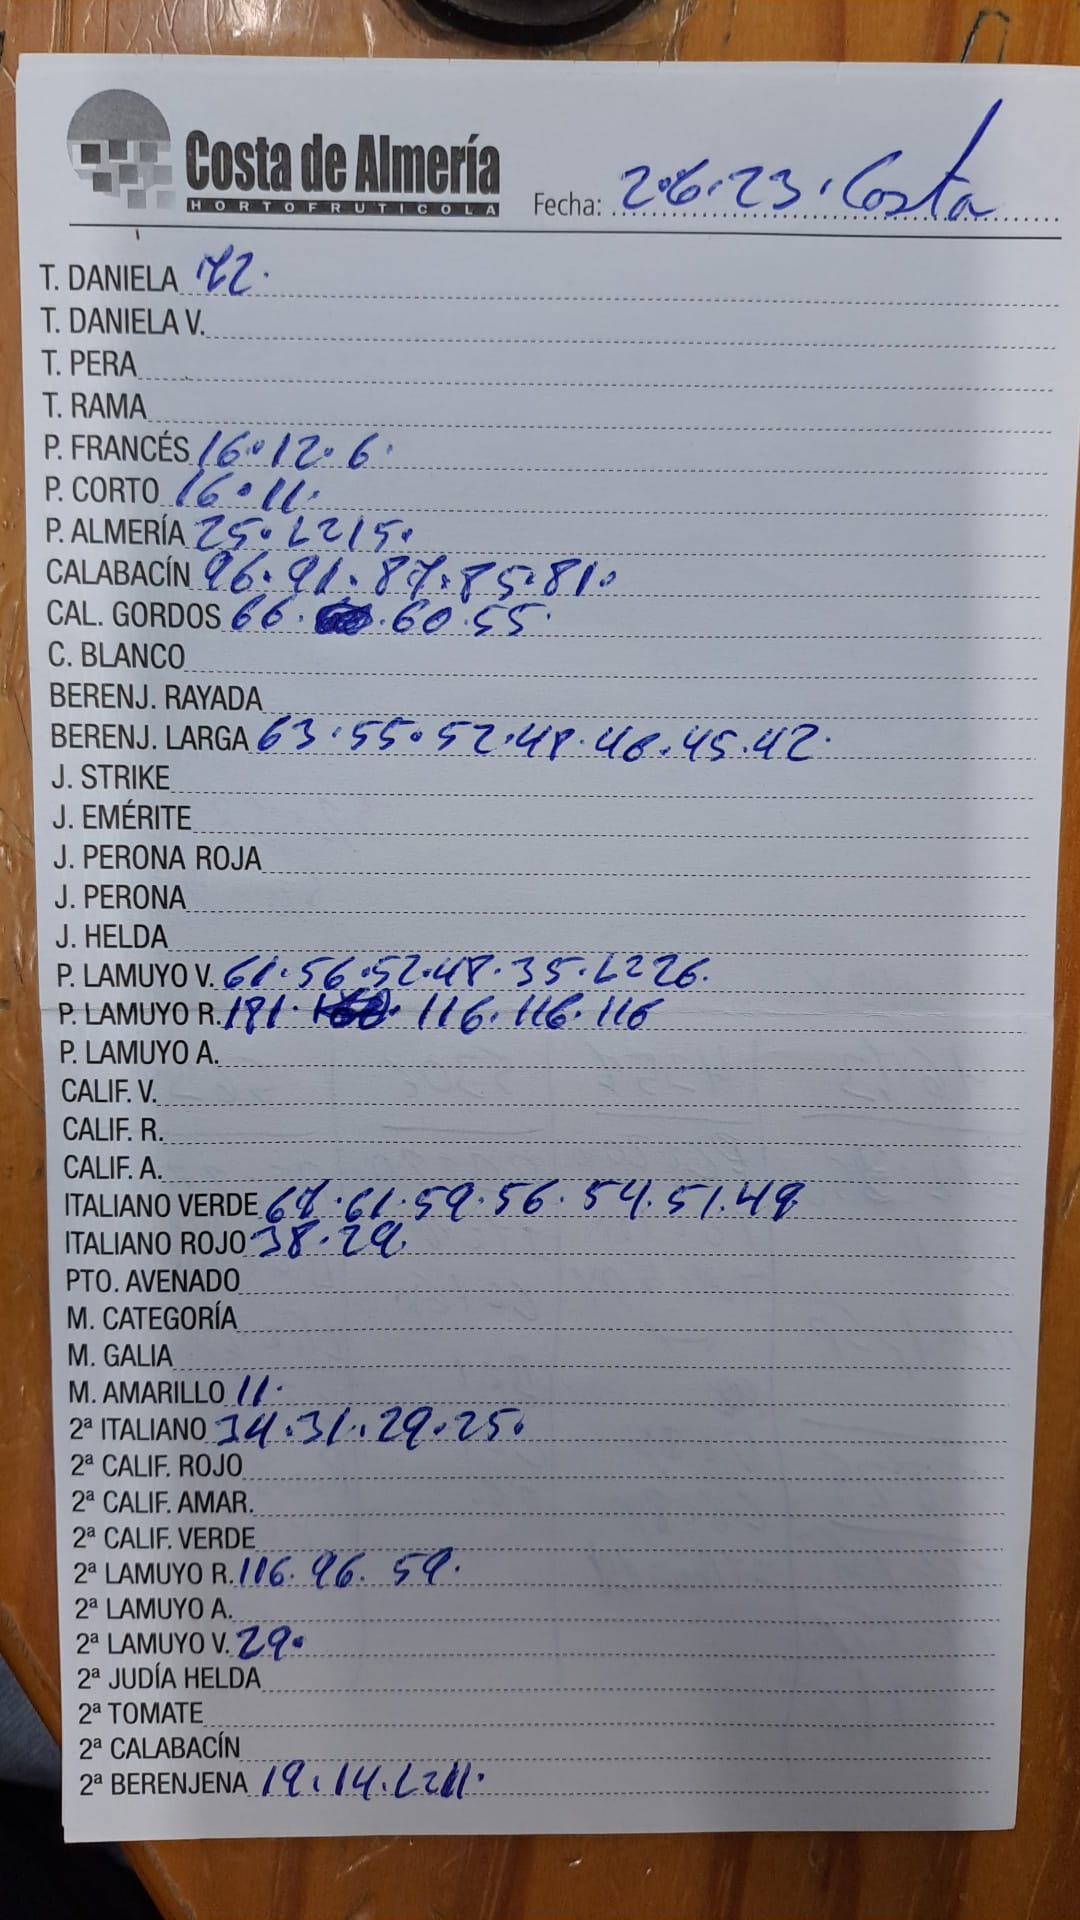 Costa de Almería
HORTOFRUTICOLA
Fecha: 2.6.23. Costa
T. DANIELA 72.
T. DANIELA V.
T. PERA
T. RAMA
P. FRANCÉS 16.12.6.
P. CORTO 16.11.
P. ALMERÍA 25.L215.
CALABACÍN 96.91.87.85.81.
CAL. GORDOS 66. .60.55.
C. BLANCO
BERENJ. RAYADA
BERENJ. LARGA 63.55.52.48.46.45.42.
J. STRIKE
J. EMÉRITE
J. PERONA ROJA
J. PERONA
J. HELDA
P. LAMUYO V. 61.56.52.48.35.L226.
P. LAMUYO R. 181. 116.116.116
P. LAMUYO A.
CALIF. V.
CALIF. R.
CALIF. A.
ITALIANO VERDE 67.61.59.56.54.51.49
ITALIANO ROJO 38.29.
PTO. AVENADO
M. CATEGORÍA
M. GALIA
M. AMARILLO 11.
2ª ITALIANO 34.31.29.25.
2ª CALIF. ROJO
2ª CALIF. AMAR.
2ª CALIF. VERDE
2ª LAMUYO R. 116.96.59.
2ª LAMUYO A.
2ª LAMUYO V. 29.
2ª JUDÍA HELDA
2ª TOMATE
2ª CALABACÍN
2ª BERENJENA 19.14.L211.